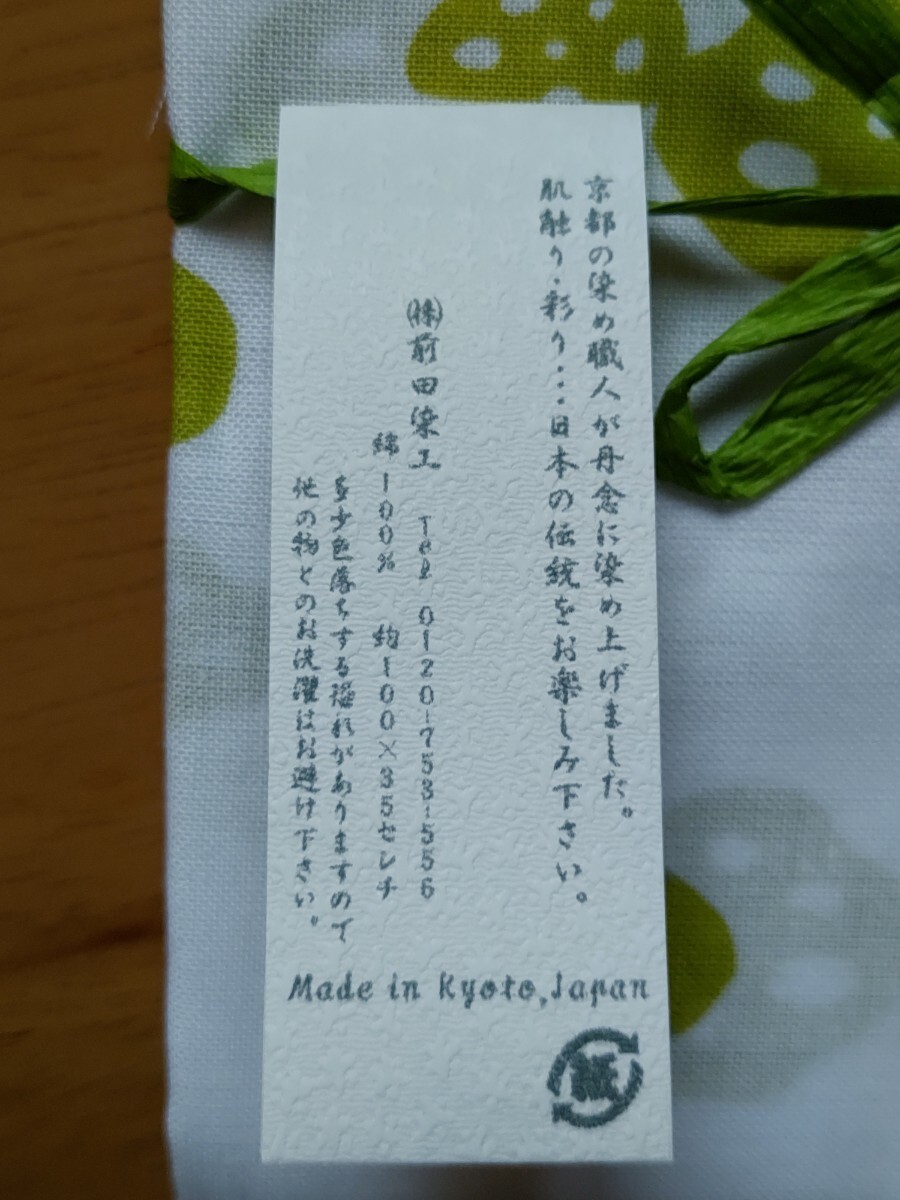 京都の染め職人が丹念に染め上げました。
肌触り・彩り・・・日本の伝統をお楽しみ下さい。
㈱前田染工 Tel 0120-753-556
綿100% 約100×35センチ
多少色落ちする場合がありますので
他の物とのお洗濯はお避け下さい。
Made in Kyoto,Japan
紙